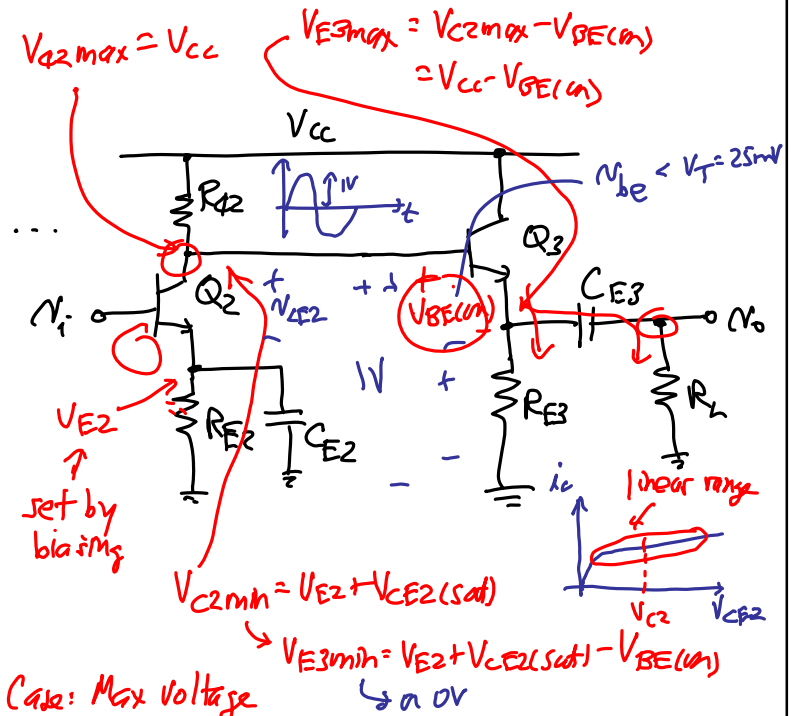 VC2max = VCC
VE3max = VC2max - VBE(on)
= VCC - VBE(on)
VCC
RC2
1V
t
vbe < VT = 25mV
...
Q2
Q3
vi
+
vCE2
-
+
+
VBE(on)
-
CE3
vo
1V
+
-
-
VE2
RE2
CE2
RE3
RL
set by
biasing
ic
linear range
VC2
VCE2
VC2min = VE2 + VCE2(sat)
↳ VE3min = VE2 + VCE2(sat) - VBE(on)
Case: Max voltage
↳ 0V